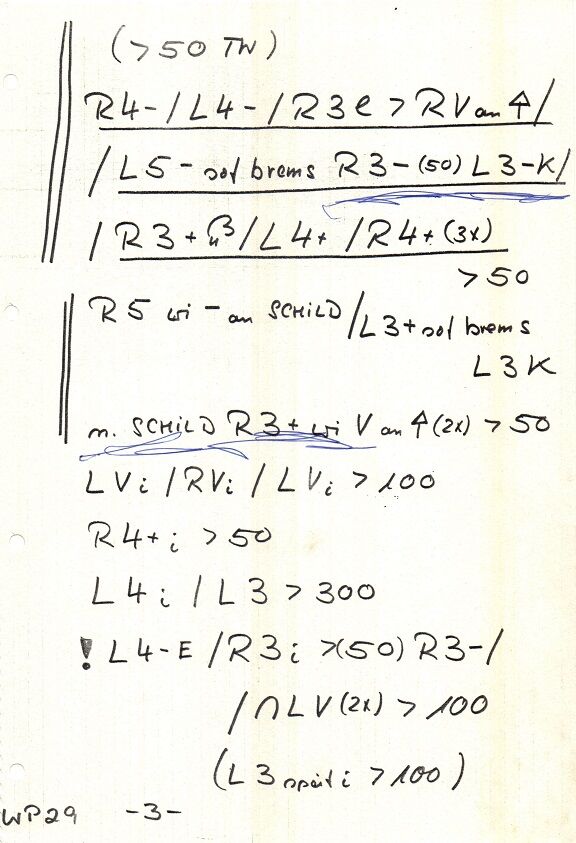 (>50 TW)
R4-/L4-/R3e>RV an ↑/
/L5- sof brems R3-(50) L3-K/
/R3+ /L4+ /R4+ (3x)
>50
R5 wi - an SCHILD/L3+ sof brems
L3K
n. SCHILD R3+ wi V an ↑ (2x) >50
LVi /RVi / LVi >100
R4+i >50
L4i / L3 >300
! L4-E /R3i >(50) R3-/
/∩LV(2x) >100
(L3 spät i >100)
WP29 -3-